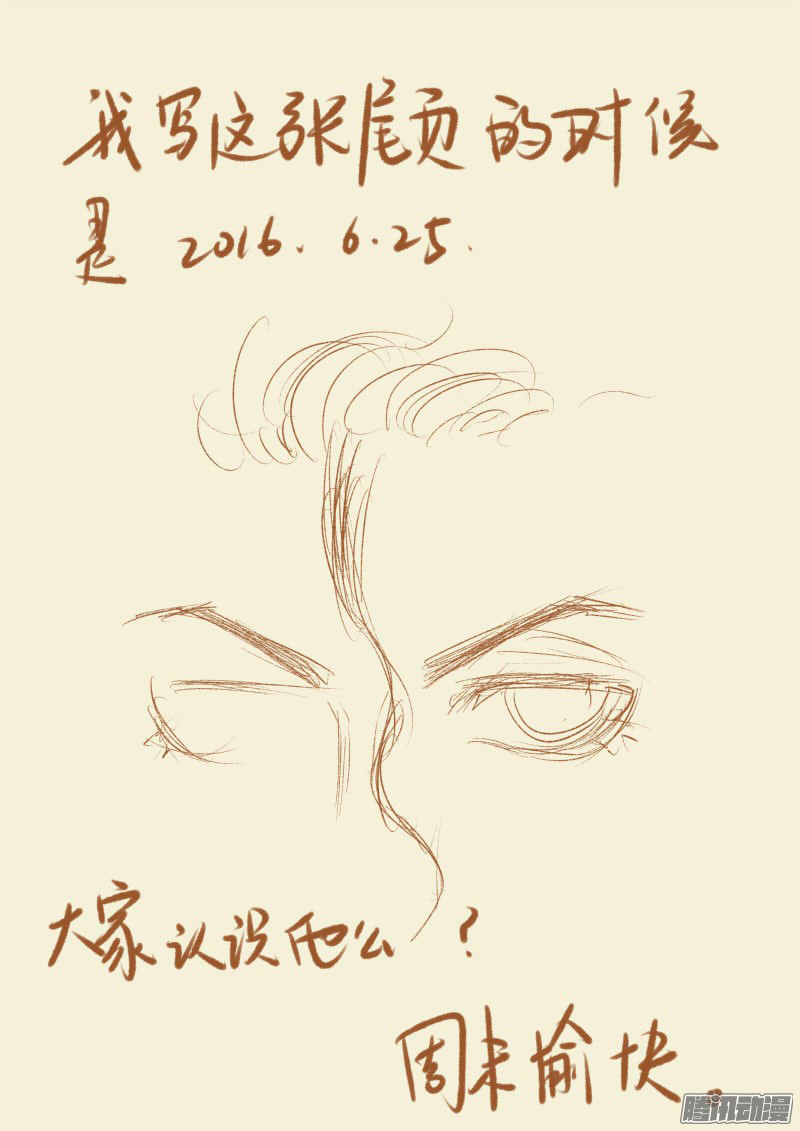 我写这张尾页的时候
是 2016.6.25.
大家认识他么？
周末愉快。
腾讯动漫